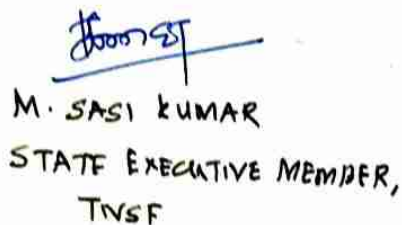 M. SASI KUMAR
STATE EXECUTIVE MEMBER,
TNSF